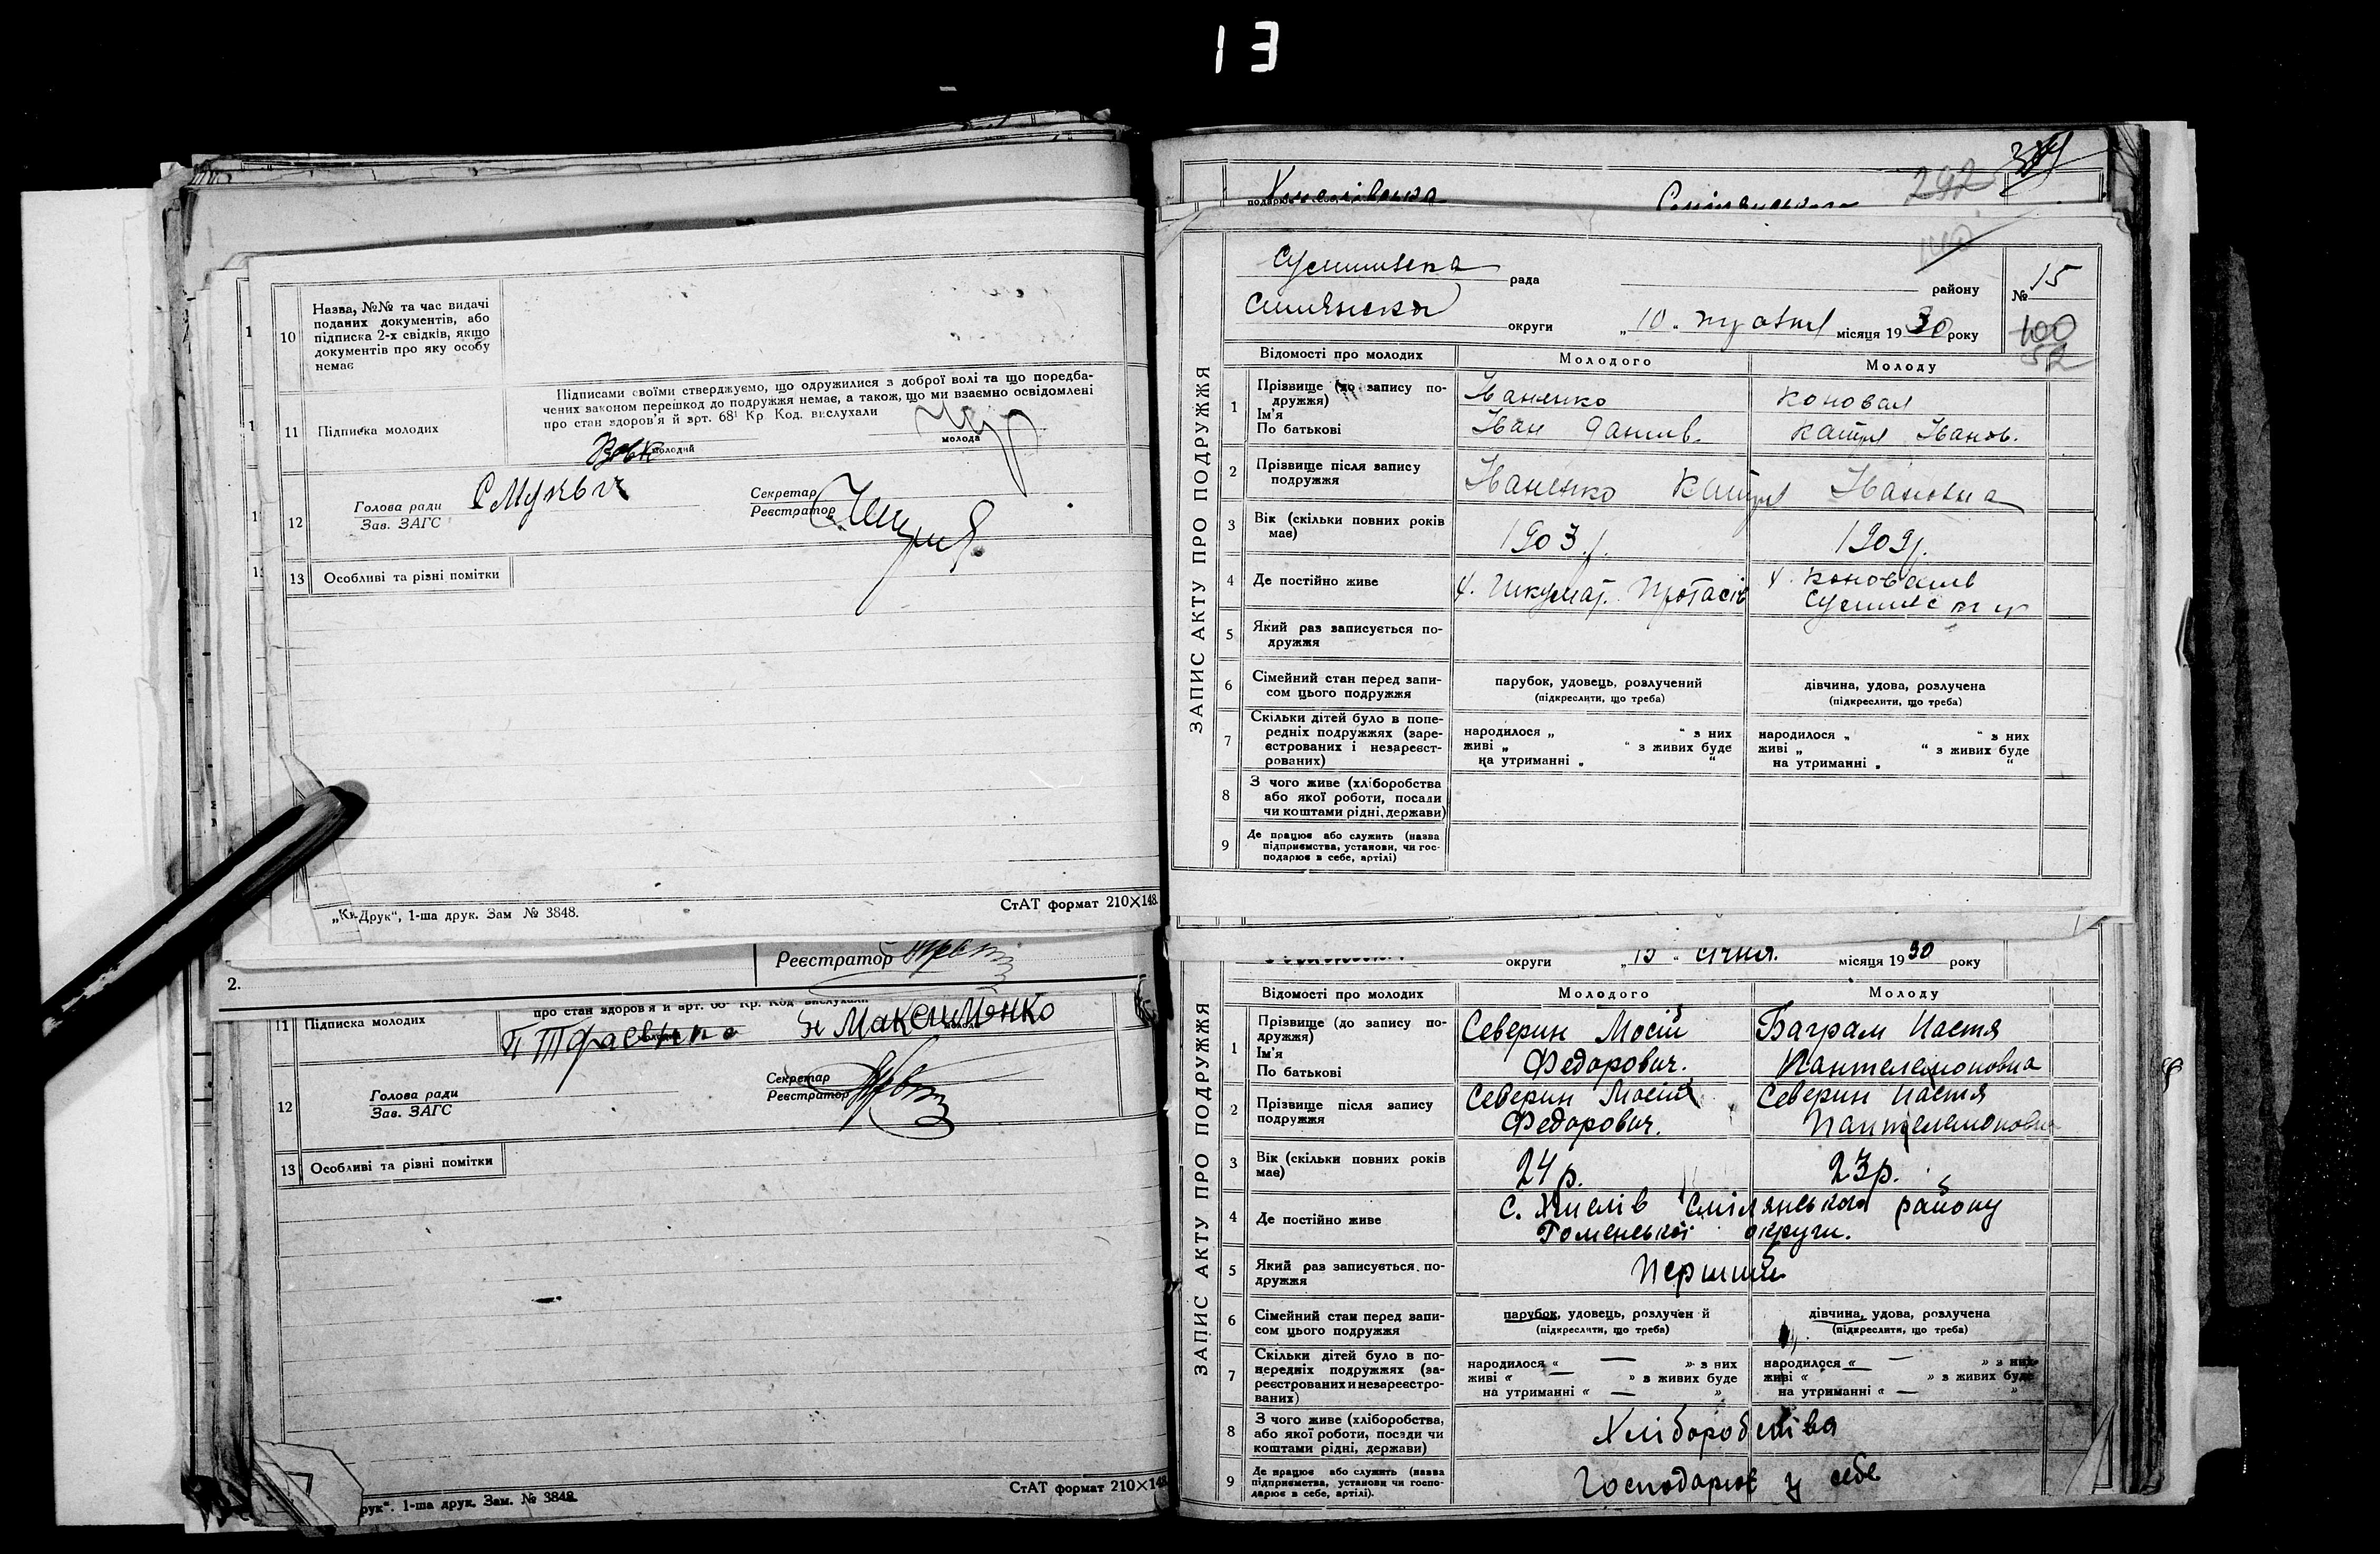 13
10
Назва, №№ та час видачі
поданих документів, або
підписка 2-х свідків, якщо
документів про яку особу
немає
Підписами своїми стверджуємо, що одружилися з доброї волі та що поредба-
чених законом перешкод до подружжя немає, а також, що ми взаємно освідомлені
про стан здоров'я й арт. 68¹ Кр. Код. вислухали
11 Підписка молодих
молодий
молода
12
Голова ради
Зав. ЗАГС
Секретар
Реєстратор
13 Особливі та різні помітки
„Ки-Друк“, 1-ша друк. Зам № 3848.
СтАТ формат 210×148
Реєстратор
2.
про стан здоров'я й арт. 68¹ Кр. Код вислухали
11 Підписка молодих
Максименко
12
Голова ради
Зав. ЗАГС
Секретар
Реєстратор
13 Особливі та різні помітки
рук“. 1-ша друк. Зам. № 3848.
СтАТ формат 210×148
292
рада
району
№ 15
округи
„10“
місяця 1930 року
100
52
ЗАПИС АКТУ ПРО ПОДРУЖЖЯ
Відомості про молодих
Молодого
Молоду
1
Прізвище (до запису по-
дружжя)
Ім'я
По батькові
Іваненко
Іван Данилв.
Коновал
Іванов.
2
Прізвище після запису
подружжя
Іваненко
Івановна
3
Вік (скільки повних років
має)
1903 р.
1909 р.
4 Де постійно живе
Протасів
5
Який раз записується по-
дружжя
6
Сімейний стан перед запи-
сом цього подружжя
парубок, удовець, розлучений
(підкреслити, що треба)
дівчина, удова, розлучена
(підкреслити, що треба)
7
Скільки дітей було в попе-
редніх подружжях (заре-
єстрованих і незареєст-
рованих)
народилося „ “ з них
живі „ “ з живих буде
на утриманні „ “
народилося „ “ з них
живі „ “ з живих буде
на утриманні „ “
8
З чого живе (хліборобства
або якої роботи, посади
чи коштами рідні, держави)
9
Де працює або служить (назва
підприємства, установи, чи гос-
подарює в себе, артілі)
округи
„13“ січня.
місяця 1930 року
ЗАПИС АКТУ ПРО ПОДРУЖЖЯ
Відомості про молодих
Молодого
Молоду
1
Прізвище (до запису по-
дружжя)
Ім'я
По батькові
Северин Мосій
Федорович.
Баграм Настя
Пантелемоновна
2
Прізвище після запису
подружжя
Северин Мосій
Федорович.
Северин Настя
Пантелемоновна
3
Вік (скільки повних років
має)
24 р.
23 р.
4 Де постійно живе
с. Хмелів Смілянського району
Роменської округи.
5
Який раз записується по-
дружжя
Перший
6
Сімейний стан перед запи-
сом цього подружжя
парубок, удовець, розлучен й
(підкреслити, що треба)
дівчина, удова, розлучена
(підкреслити, що треба)
7
Скільки дітей було в по-
передніх подружжях (за-
реєстрованих и незареєстро-
ваних)
народилося « — » з них
живі « — » з живих буде
на утриманні « — »
народилося « — » з них
живі « — » з живих буде
на утриманні « — »
8
З чого живе (хліборобства,
або якої роботи, посади чи
коштами рідні, держави)
Хліборобства
9
Де працює або служить (назва
підприємства, установи чи госпо-
дарює в себе, артілі).
Господарює у себе